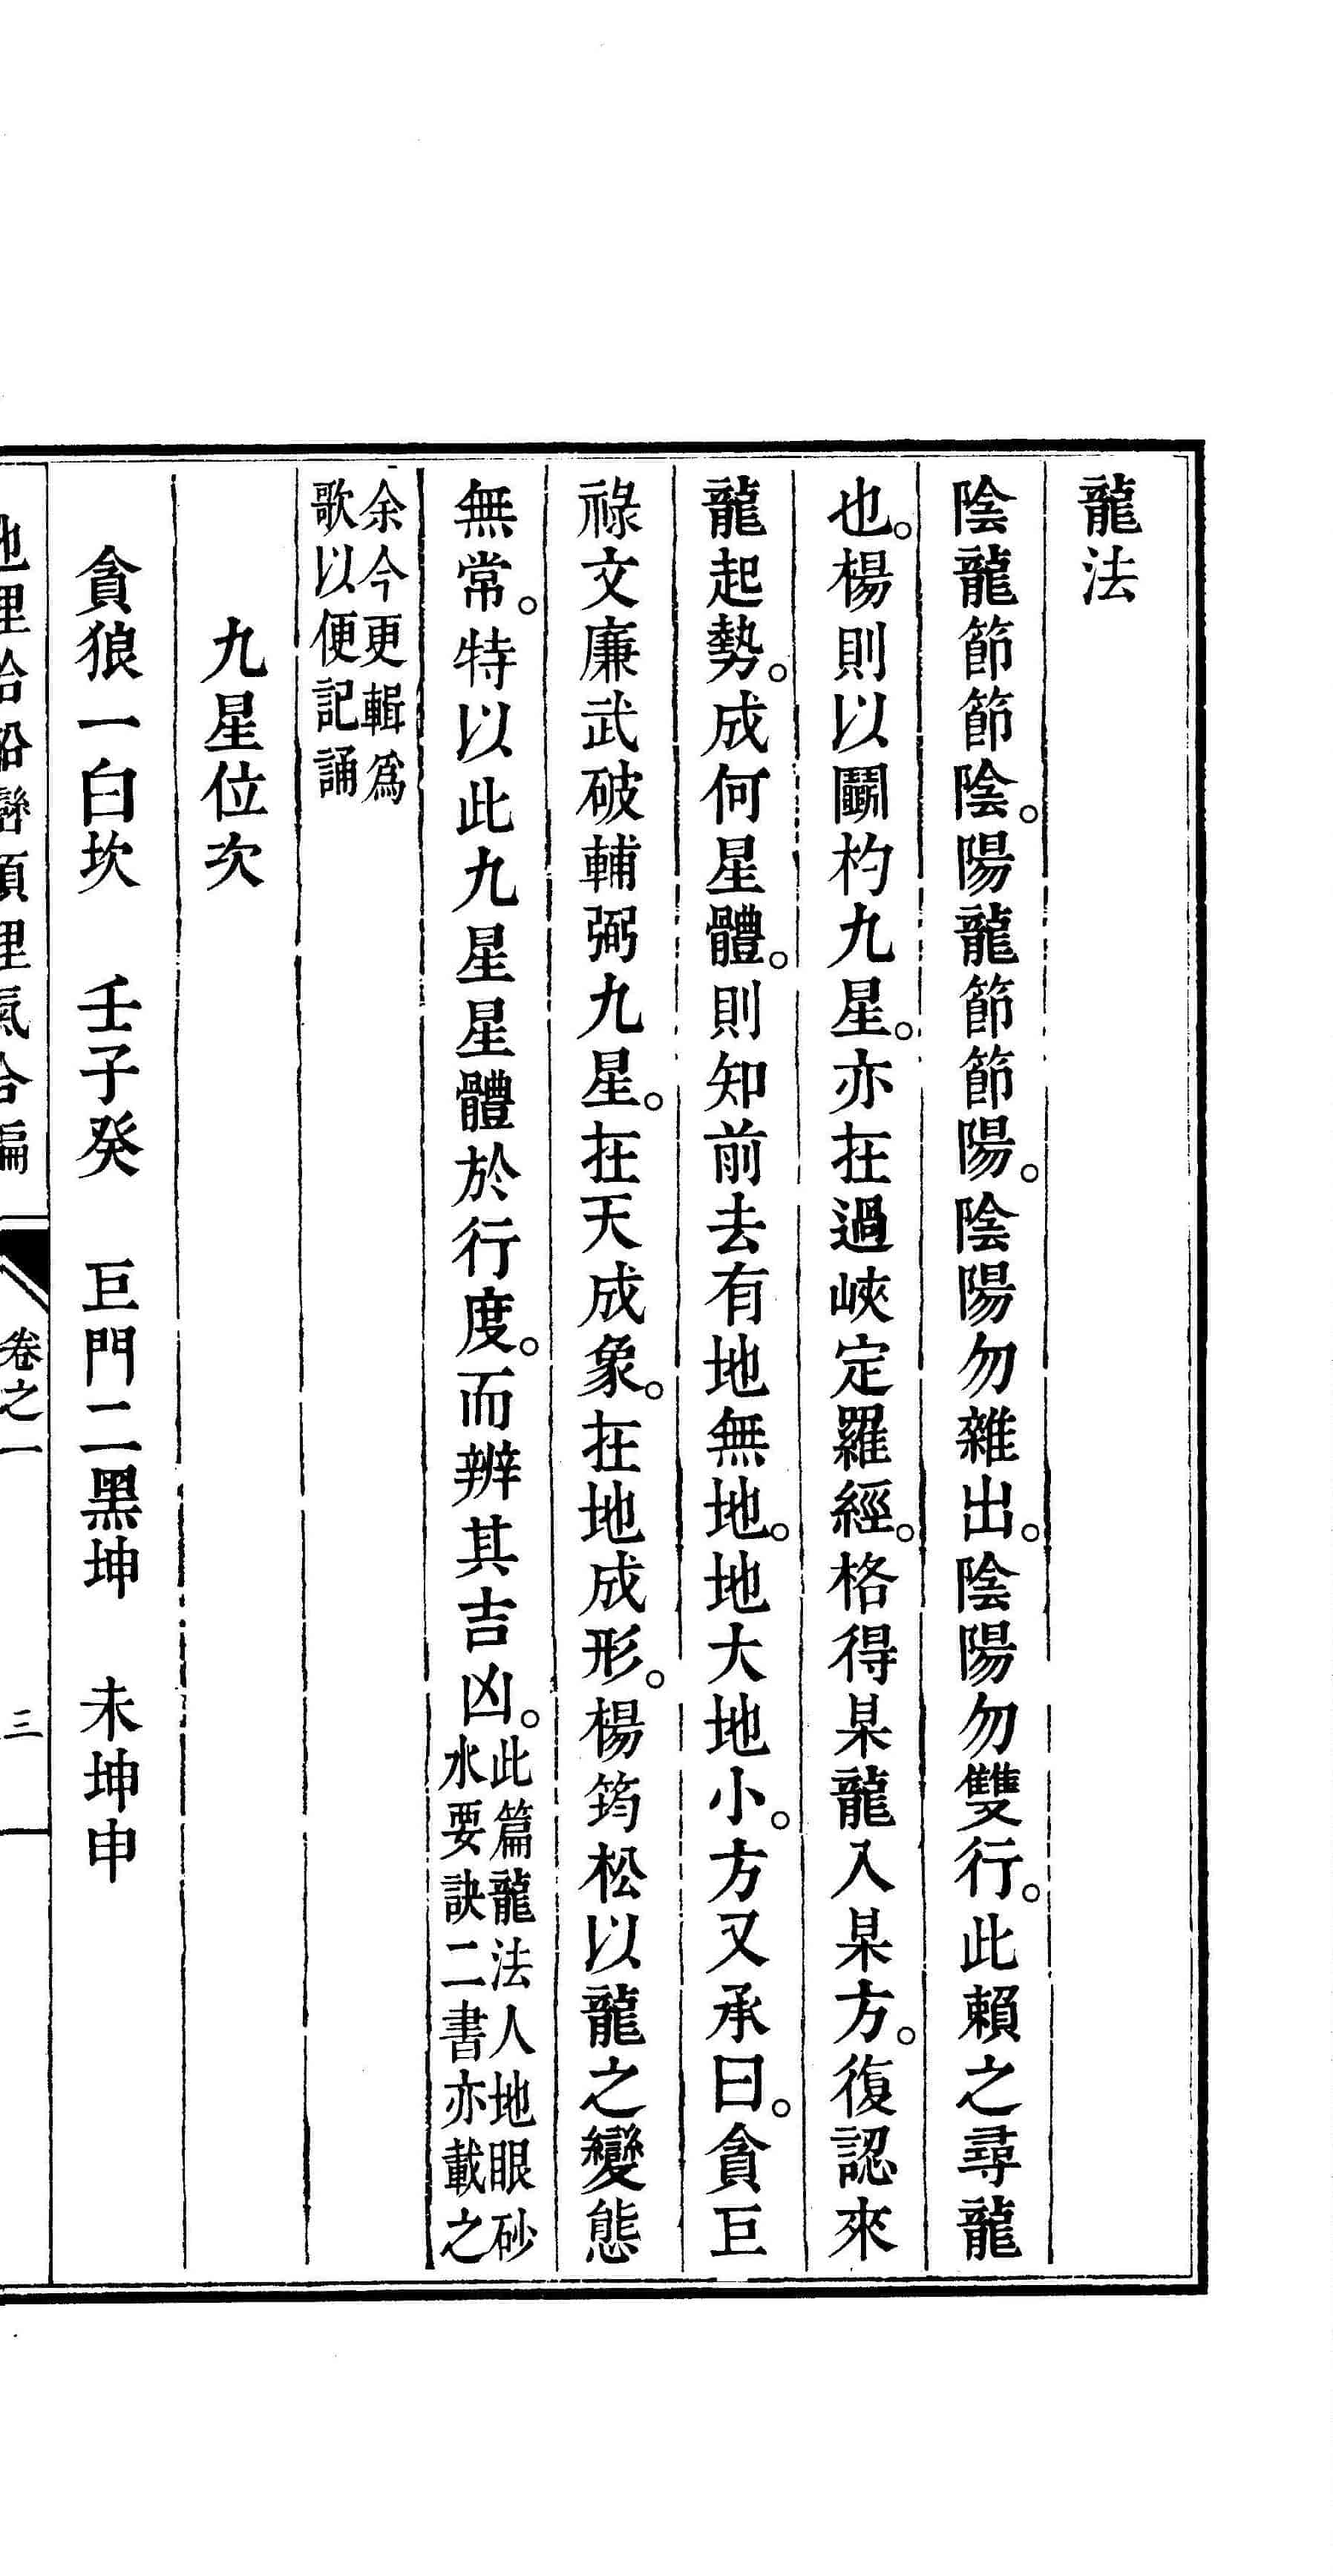 龍法
陰龍節節陰。陽龍節節陽。陰陽勿雜出。陰陽勿雙行。此賴之尋龍
也。楊則以鬭杓九星。亦在過峽定羅經。格得某龍入某方。復認來
龍起勢。成何星體。則知前去有地無地。地大地小。方又承曰。貪巨
祿文廉武破輔弼九星。在天成象。在地成形。楊筠松以龍之變態
無常。特以此九星星體於行度。而辨其吉凶。此篇龍法人地眼砂
水要訣二書亦載之
余今更輯爲
歌以便記誦
九星位次
貪狼一白坎 壬子癸 巨門二黑坤 未坤申
卷之一 三